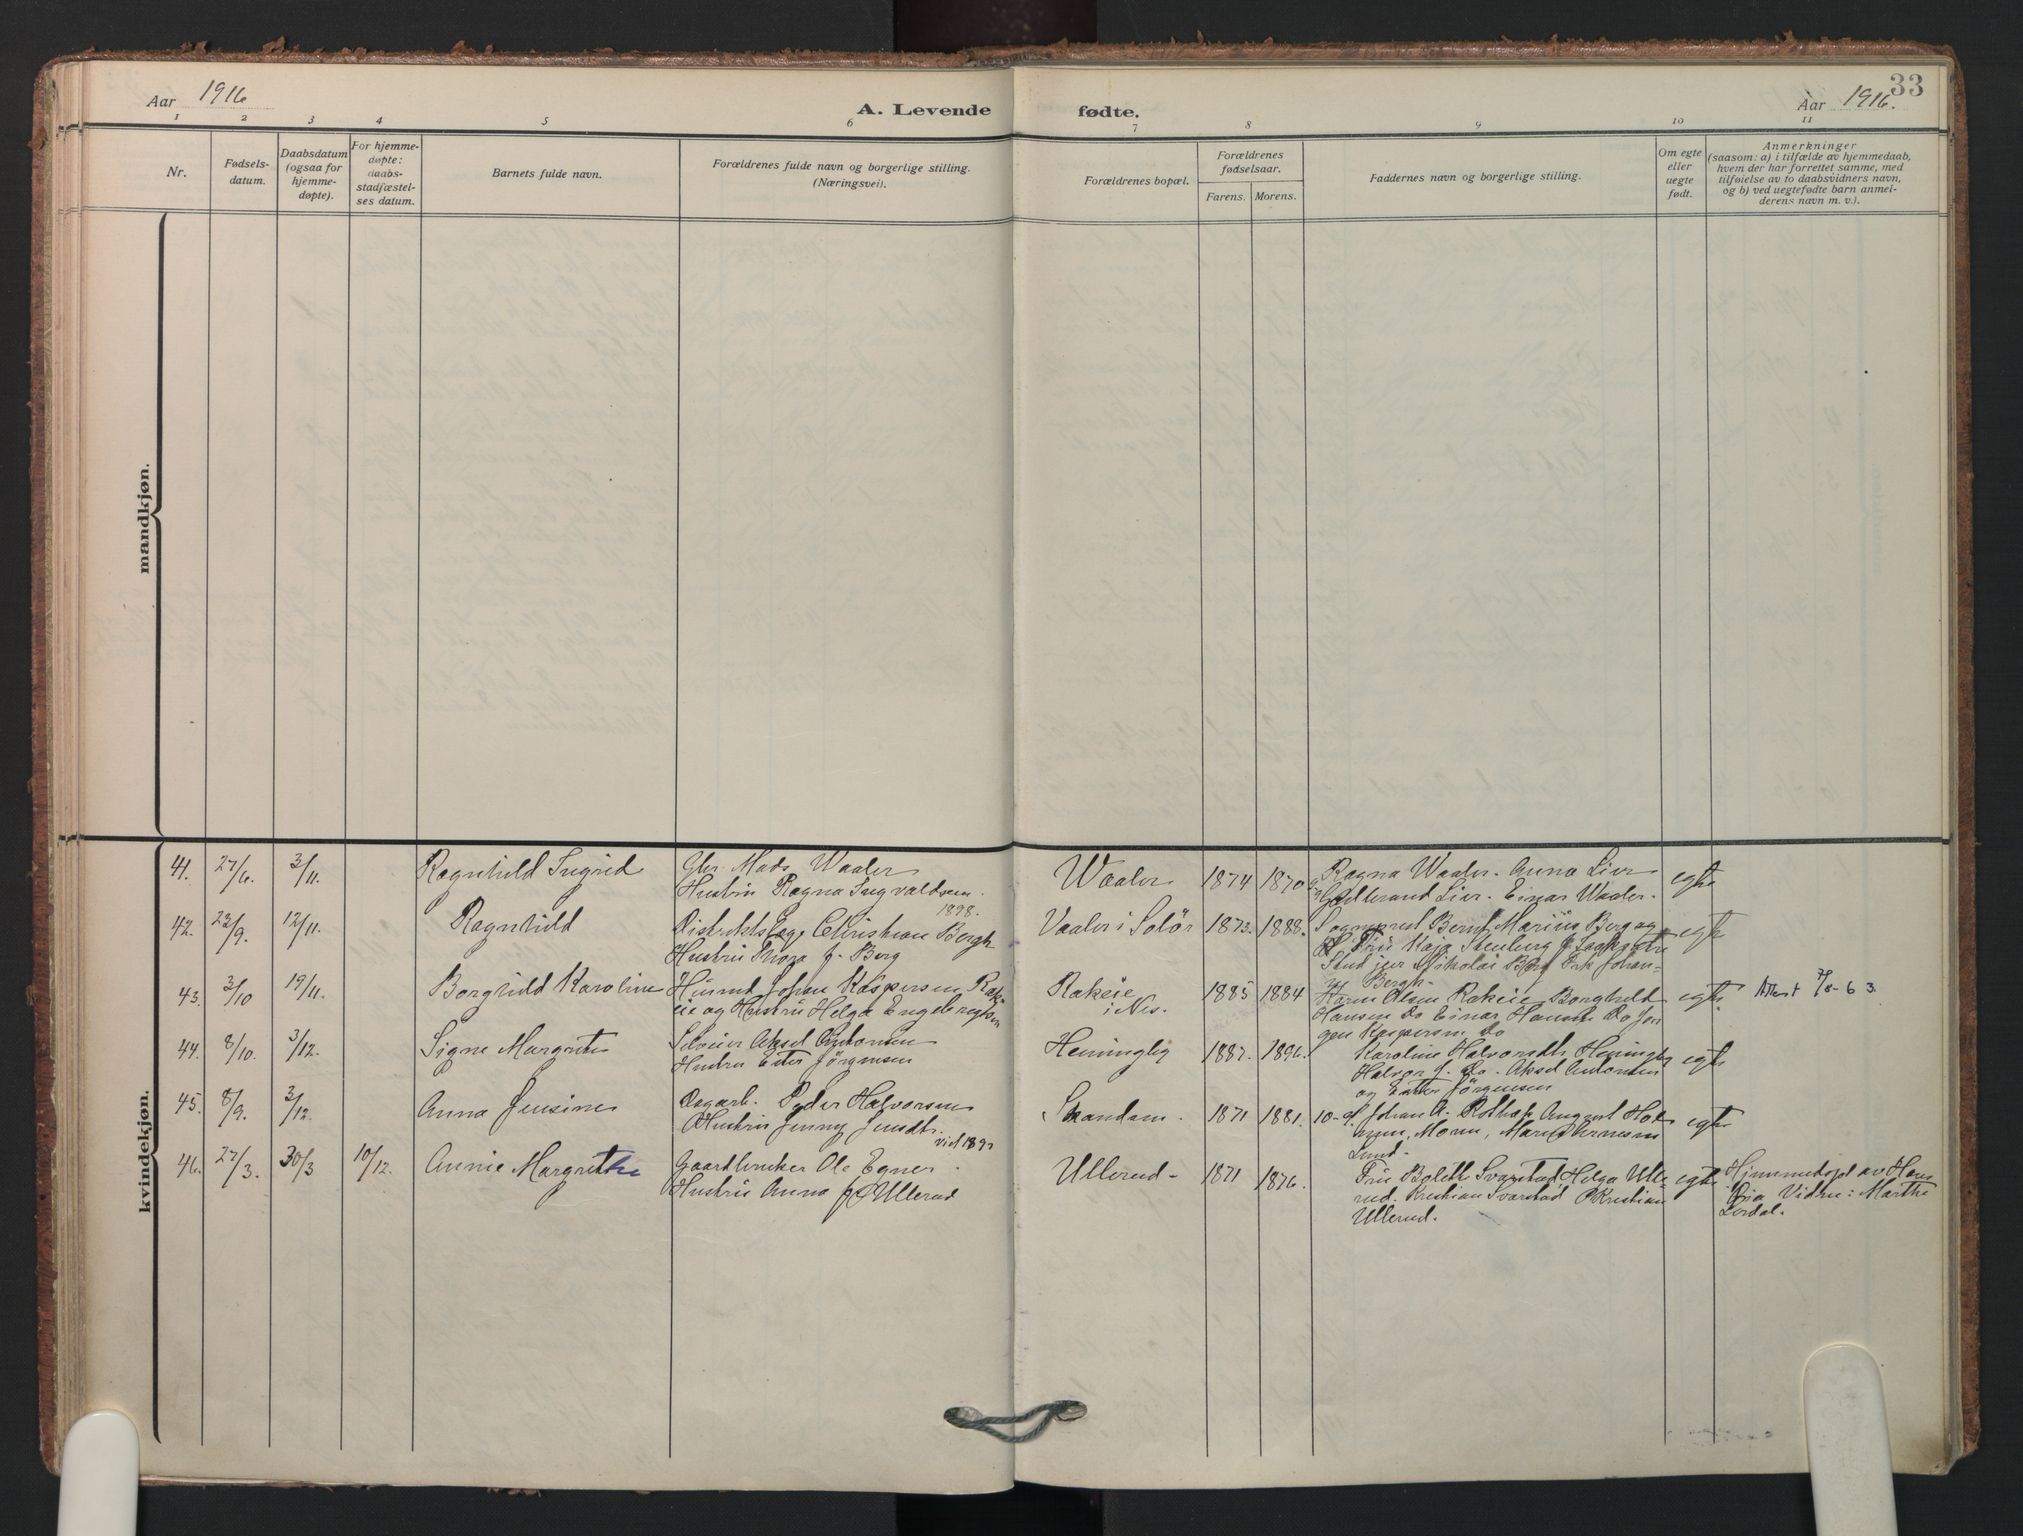 33
Aar 1916
A. Levende fødte.
Aar 1916.
1 2 3 4 5 6 7 8 9 10 11
Nr.
Fødsels-
datum.
Daabsdatum
(ogsaa for
hjemme-
døpte).
For hjemme-
døpte:
daabs-
stadfæstel-
ses datum.
Barnets fulde navn.
Forældrenes fulde navn og borgerlige stilling.
(Næringsvei).
Forældrenes bopæl.
Forældrenes
fødselsaar.
Farens. Morens.
Faddernes navn og borgerlige stilling.
Om egte
eller
uegte
født.
Anmerkninger
(saasom: a) i tilfælde av hjemmedaab,
hvem der har forrettet samme, med
tilføielse av to daabsvidners navn,
og b) ved uegtefødte barn anmel-
derens navn m. v.).
mandkjøn.
kvindekjøn.
41. 27/6. 3/11. Ragnhild Ingrid
Gbr. Mads Waaler
Hustru Ragna Ingvaldsen.
1898.
Waaler 1874 1870
Ragna Waaler. Anna Lier
Gulbrand Lier. Einar Waaler.
egte
42. 23/9. 12/11. Ragnhild
Distriktslæge Christian Bergh
Hustru Thora f. Berg
Vaaler i Solør 1873. 1888.
Sogneprest Bernt Marius Berg og
Fru Kaja Stenberg
Stud jur Nikolai Berg Frk Johan-
Bergh.
egte
43. 3/10 19/11. Borghild Karoline
Husmd Johan Kaspersen Rak-
eie og Hustru Helga Engebregtsen
Rakeie
i Nes. 1885 1884
Karen Olsen Rakeie Borghild
Hansen Do Einar Hansen Do Jør-
gen Kaspersen Do
egte
Attest 7/8-63.
44. 8/10. 3/12. Signe Margrete
Selveier Aksel Antonsen
Hustru Ester Jørgensen
Heningby 1887. 1896.
Karoline Halvorsdtr Heningby
Halvor J. Do. Aksel Antonsen
og Ester Jørgensen
egte
45. 8/9. 3/12. Anna Jensine
Dagarb. Peder Halvorsen
Hustru Jenny Jensdtr.
Skandam. 1871 1881.
Johan A. August Hol-
men, Moren, Mari Arnesen
Lund.
egte
46. 27/3. 30/3 10/12. Annie Margrethe
Gaardbruker Ole Egner.
Hustru Anna f. Ullerud
Ullerud 1871 1876.
Fru Boleth Svarstad Helga Ulle-
rud. Kristian Svarstad Kristian
Ullerud.
egte
Himmedøpt av Hans
Vidne: Marthe
Lordal.